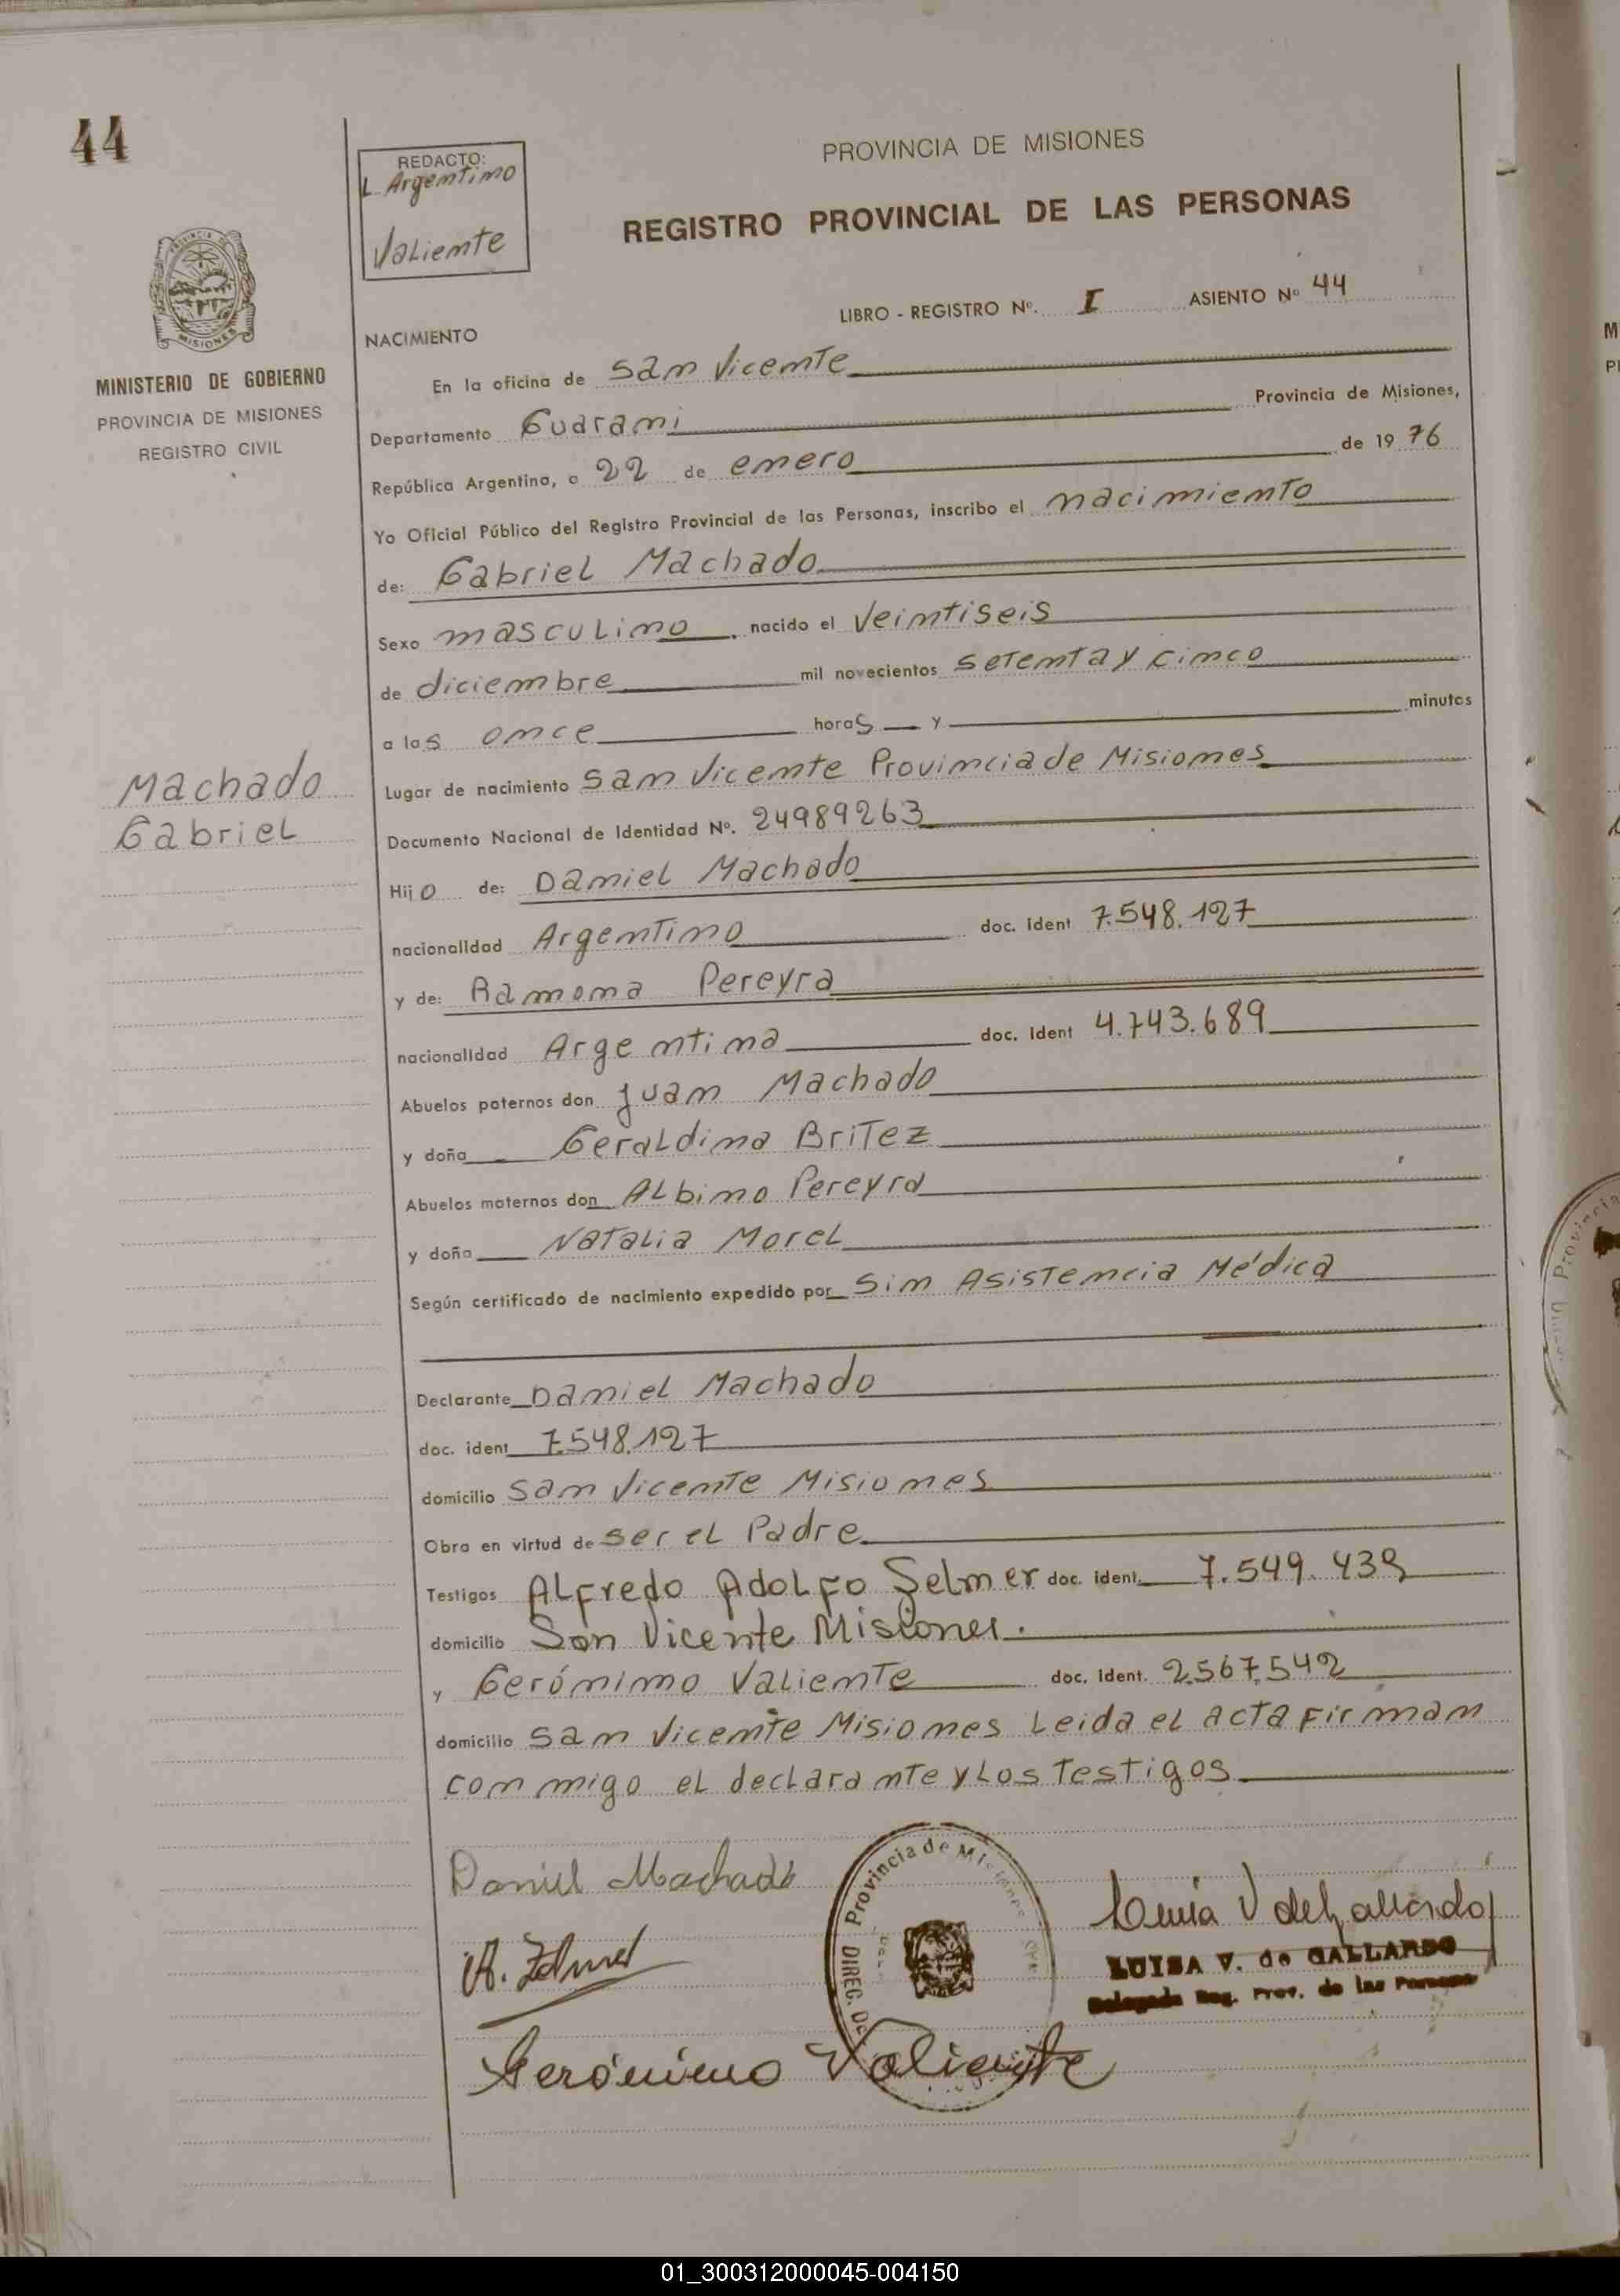 44
REDACTO:
L. Argentino
Valiente
PROVINCIA DE MISIONES
REGISTRO PROVINCIAL DE LAS PERSONAS
LIBRO - REGISTRO Nº. I ASIENTO Nº 44
MISIONES
MINISTERIO DE GOBIERNO
PROVINCIA DE MISIONES
REGISTRO CIVIL
NACIMIENTO
En la oficina de San Vicente
Departamento Guarani Provincia de Misiones,
República Argentina, a 22 de enero de 1976
Yo Oficial Público del Registro Provincial de las Personas, inscribo el nacimiento
de: Gabriel Machado
Sexo masculino, nacido el Veintiseis
de diciembre mil novecientos setenta y cinco
a las once horas y minutos
Machado
Gabriel
Lugar de nacimiento San Vicente Provincia de Misiones
Documento Nacional de Identidad Nº. 24989263
Hijo de: Daniel Machado
nacionalidad Argentino doc. ident 7.548.127
y de: Ramona Pereyra
nacionalidad Argentina doc. ident 4.743.689
Abuelos paternos don Juan Machado
y doña Geraldina Britez
Abuelos maternos don Albino Pereyra
y doña Natalia Morel
Según certificado de nacimiento expedido por Sin Asistencia Médica
Declarante Daniel Machado
doc. ident 7.548.127
domicilio San Vicente Misiones
Obra en virtud de ser el Padre
Testigos Alfredo Adolfo Selmer doc. ident. 7.549.439
domicilio San Vicente Misiones.
y Gerónimo Valiente doc. ident. 2.567.542
domicilio San Vicente Misiones Leida el acta Firman
conmigo el declarante y Los Testigos
Daniel Machado
Provincia de Misiones
DIREC. DE
LUISA V. de GALLARDO
Delegada Reg. Prov. de las Personas
Gerónimo Valiente
01_300312000045-004150